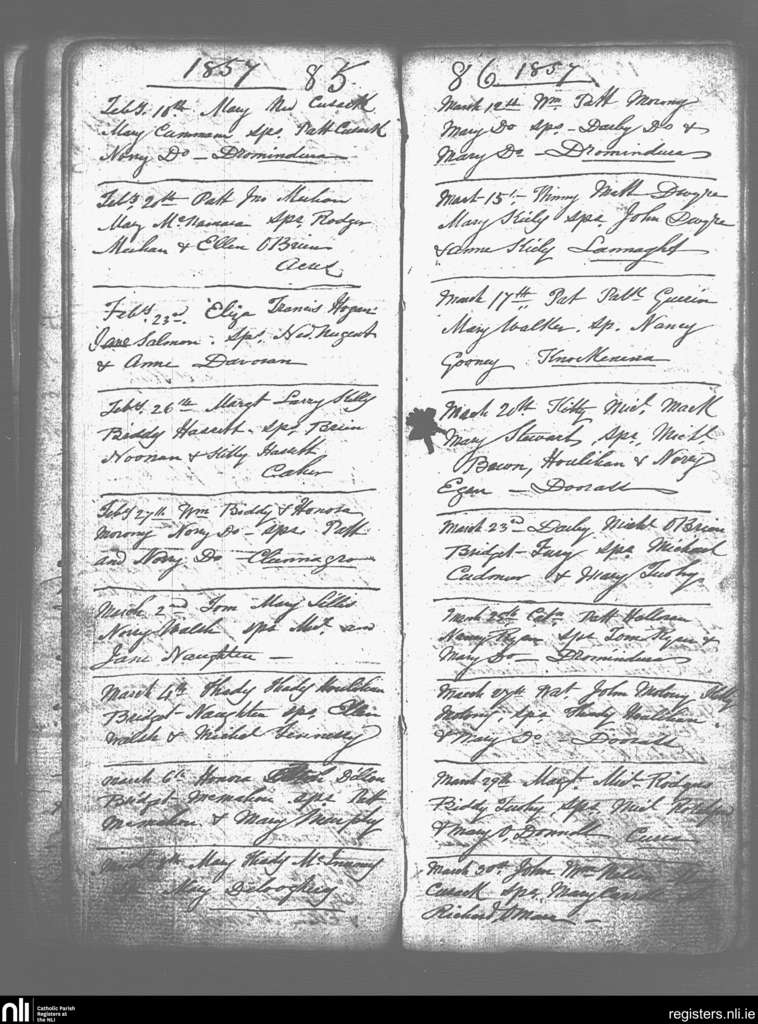 1857 85
Feby. 18th Mary Ned Cusack
Mary Cunneane Sps. Patt Cusack
Nory Do - Dromindoora
Feby 20th Patt Jno Meehan
Mary McNamara Sps. Rodger
Meehan & Ellen O'Brien
Feby. 23rd. Eliza Francis Hogan
Jane Salmon. Sps. Nugent
& Anne Davoran
Feby. 26th Margt Larry Kelly
Biddy Hassett. Sps. Brien
Noonan & Kitty Hassett
Caher
Feby 27th Wm Biddy & Honora
Morony Nory Do - Sps. Patt
and Nory Do
March 2nd Tom
Nory Walsh Sps Mick. an
Jane Naughten -
March 4th Thady Thady Houlihan
Bridget Naughten Sps. Ellen
Walsh & Michal Hennessy
March 6th Honora Dillon
Bridget McMahon Sps Patt
McMahon & Mary Murphy
Mary Thady McInerny
Mary
86 1857
March 12th Wm Patt Morony
Mary Do Sps - Darby Do &
Mary Do - Dromindoora
March 15th - Winny Matt Dwyre
Mary Kiely Sps. John Dwyre
& Anne Kiely Lannaght
March 17th Pat Patk Guerin
Mary Walker. Sp. Nancy
Gooney Knockenena
March 20th Kitty Micl. Mack
Mary Stewart Sps. Michl
Bacon, Houlihan & Nory
Egan - Doorass
March 23rd Darby Michl O'Brien
Bridget Fury Sps Michael
Cudmore & Mary Tuohy
March 25th Patt Halloran
Nancy Ryan Sps Tom Ryan &
Mary Do - Dromindoora
March 27th Pat. John Molony
Molony, Sps. Thady Houlihan
& Mary Do - Doorass
March 29th Margt. Micl. Rodgers
Biddy Tuohy, Sps. Micl Rodgers
& Mary O'Donnell
March 30th John Wm
Cusack Sps. Mary
Richard O'Meara -
nli
Catholic Parish
Registers at
the NLI
registers.nli.ie